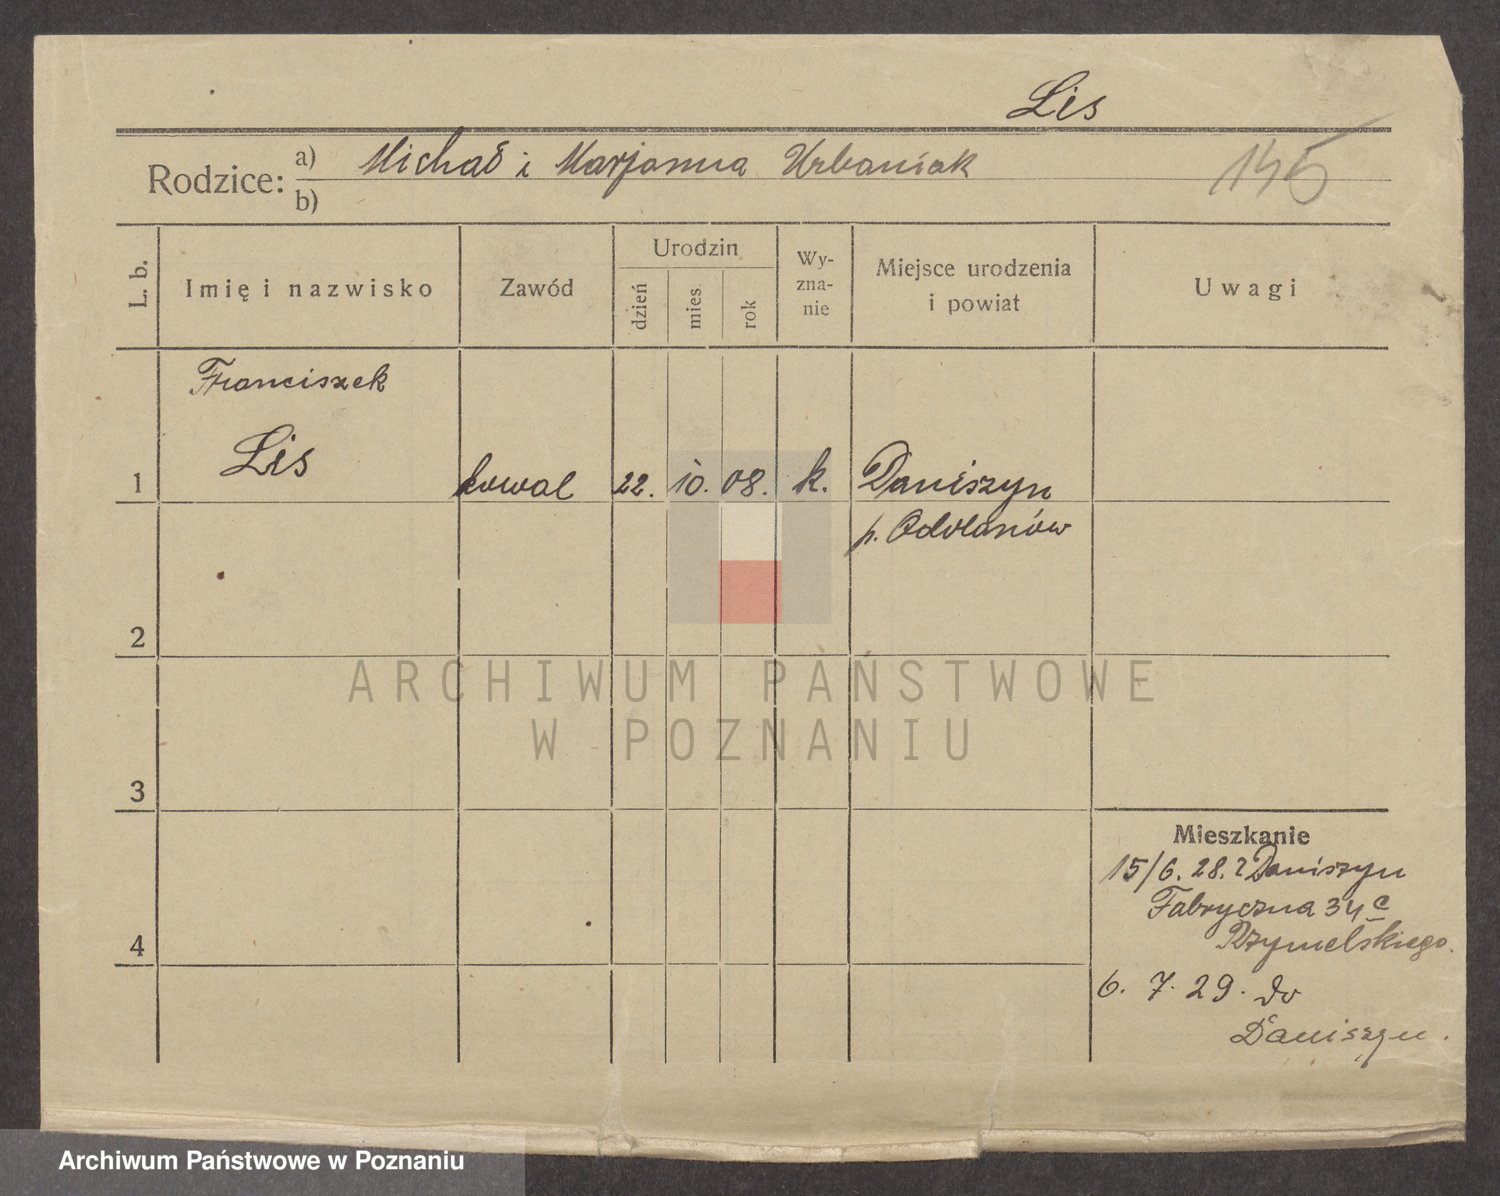 Lis
Rodzice: a) Michał i Marjanna Urbaniak
b)
145
L. b.
Imię i nazwisko
Zawód
Urodzin
dzień
mies.
rok
Wy-
zna-
nie
Miejsce urodzenia
i powiat
Uwagi
Franciszek
Lis
1 kowal 22. 10. 08. k. Daniszyn
p. Odolanów
2
3
4
ARCHIWUM PAŃSTWOWE
W POZNANIU
Mieszkanie
15/6. 28. z Daniszyn
Fabryczna 34 c
Rzymelskiego.
6. 7. 29. do
Daniszyn.
Archiwum Państwowe w Poznaniu